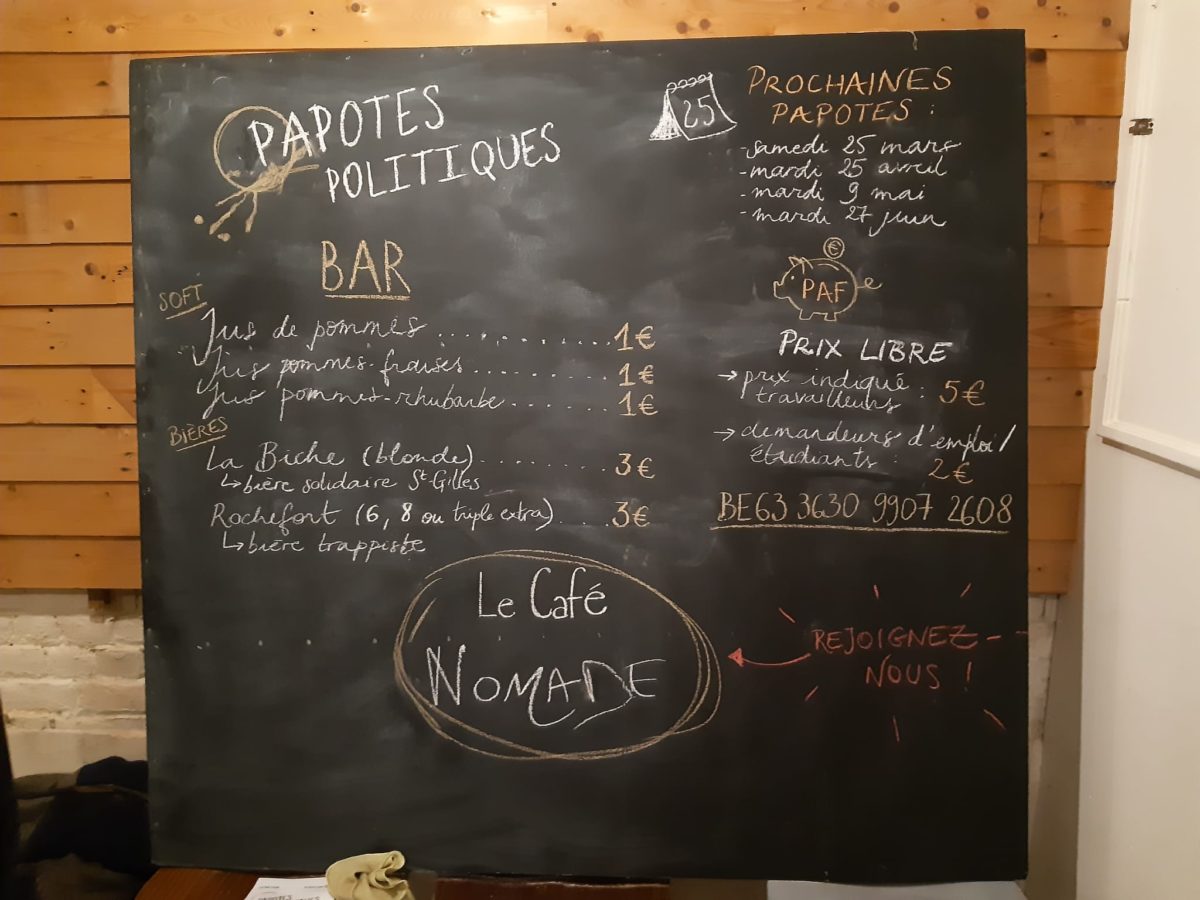 PAPOTES
POLITIQUES
BAR
SOFT
Jus de pommes ............ 1€
Jus pommes-fraises ............ 1€
Jus pommes-rhubarbe ........ 1€
BIÈRES
La Biche (blonde) ........... 3€
↳ bière solidaire St-Gilles
Rochefort (6, 8 ou triple extra) .... 3€
↳ bière trappiste
25
PROCHAINES
PAPOTES :
- samedi 25 mars
- mardi 25 avril
- mardi 9 mai
- mardi 27 juin
€
PAF
PRIX LIBRE
→ prix indiqué
travailleurs : 5€
→ demandeurs d'emploi/
étudiants : 2€
BE63 3630 9907 2608
Le Café
NOMADE
REJOIGNEZ-
NOUS !
PAPOTES